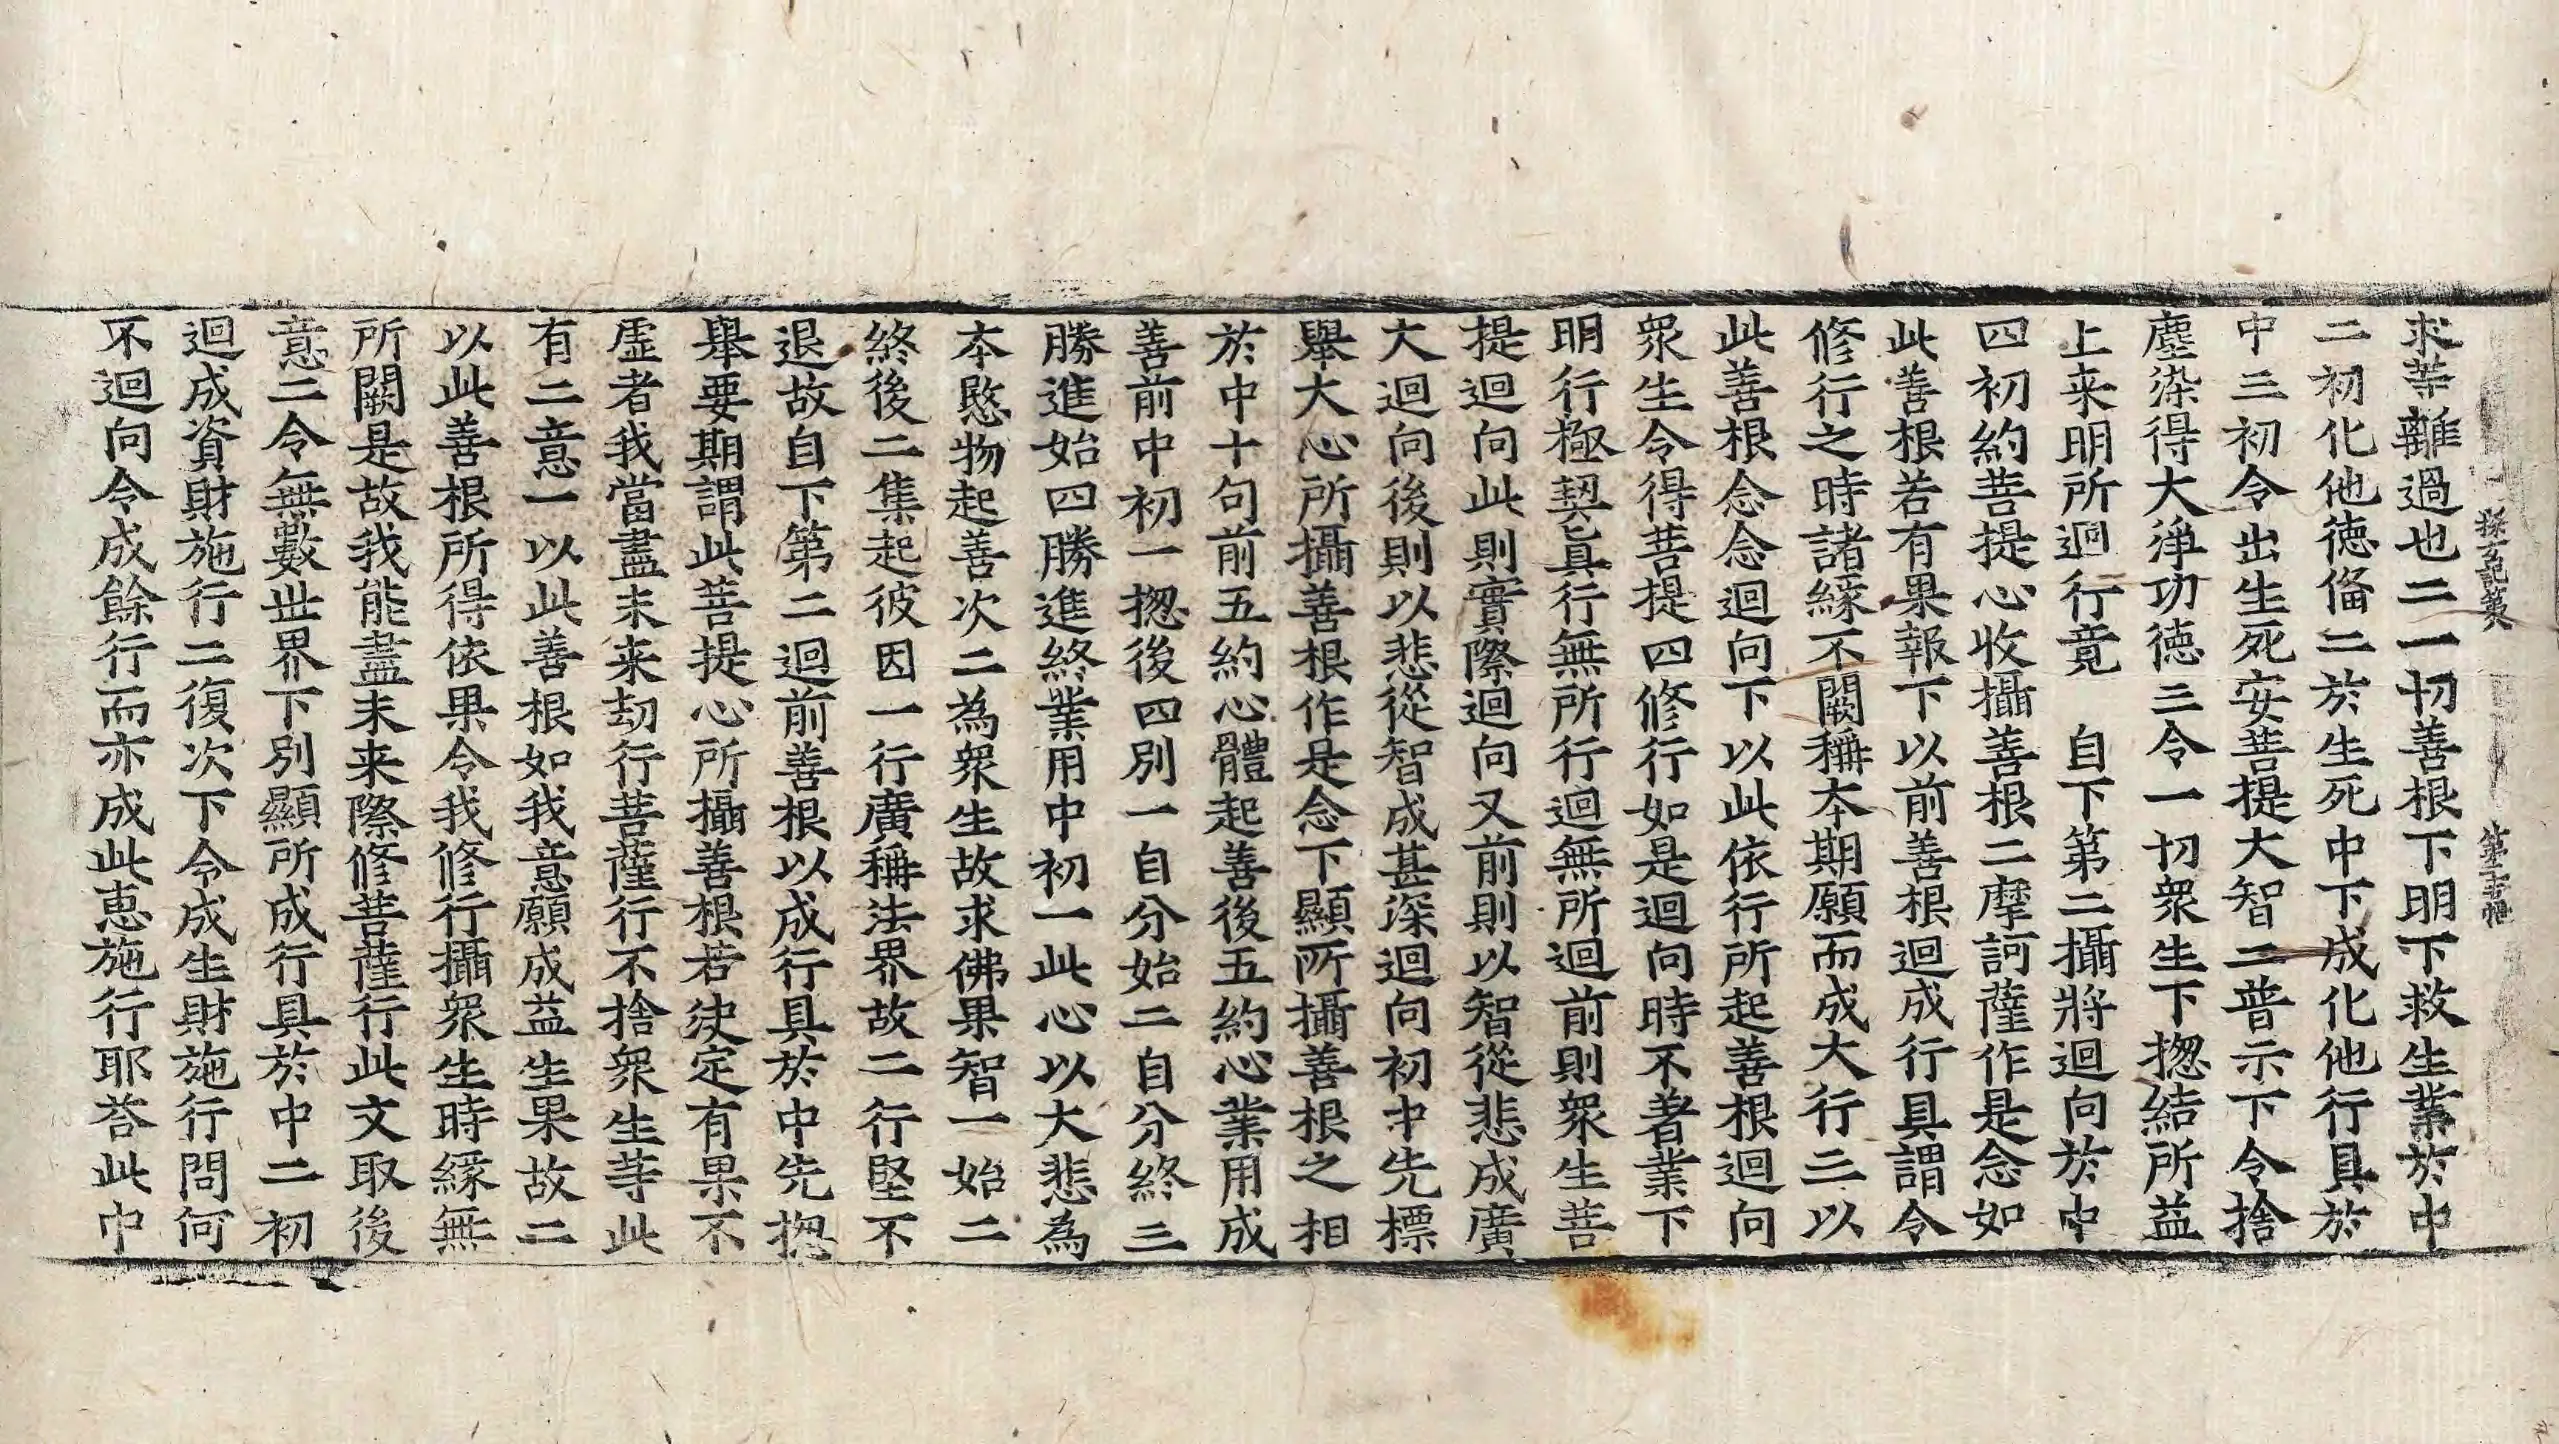 探玄記第八 第二十一
求等離過也二一切善根下明下救生業於中
二初化他德俻二於生死中下成化他行具於
中三初令出生死安菩提大智二普示下令捨
塵染得大淨功德三令一切衆生下揔結所益
上来明所迴行竟 自下第二攝將迴向於中
四初約菩提心收攝善根二摩訶薩作是念如
此善根若有果報下以前善根迴成行具謂令
修行之時諸緣不闕稱本期願而成大行三以
此善根念念迴向下以此依行所起善根迴向
衆生令得菩提四修行如是迴向時不著業下
明行極契真行無所行迴無所迴前則衆生菩
提迴向此則實際迴向又前則以智從悲成廣
大迴向後則以悲從智成甚深迴向初中先標
舉大心所攝善根作是念下顯所攝善根之相
於中十句前五約心體起善後五約心業用成
善前中初一揔後四別一自分始二自分終三
勝進始四勝進終業用中初一此心以大悲為
本愍物起善次二為衆生故求佛果智一始二
終後二集起彼因一行廣稱法界故二行堅不
退故自下第二迴前善根以成行具於中先揔
舉要期謂此菩提心所攝善根若決定有果不
虛者我當盡未来劫行菩薩行不捨衆生等此
有二意一以此善根如我意願成益生果故二
以此善根所得依果令我修行攝衆生時緣無
所闕是故我能盡未来際修菩薩行此文取後
意二令無數世界下別顯所成行具於中二初
迴成資財施行二復次下令成生財施行問何
不迴向令成餘行而亦成此惠施行耶荅此中